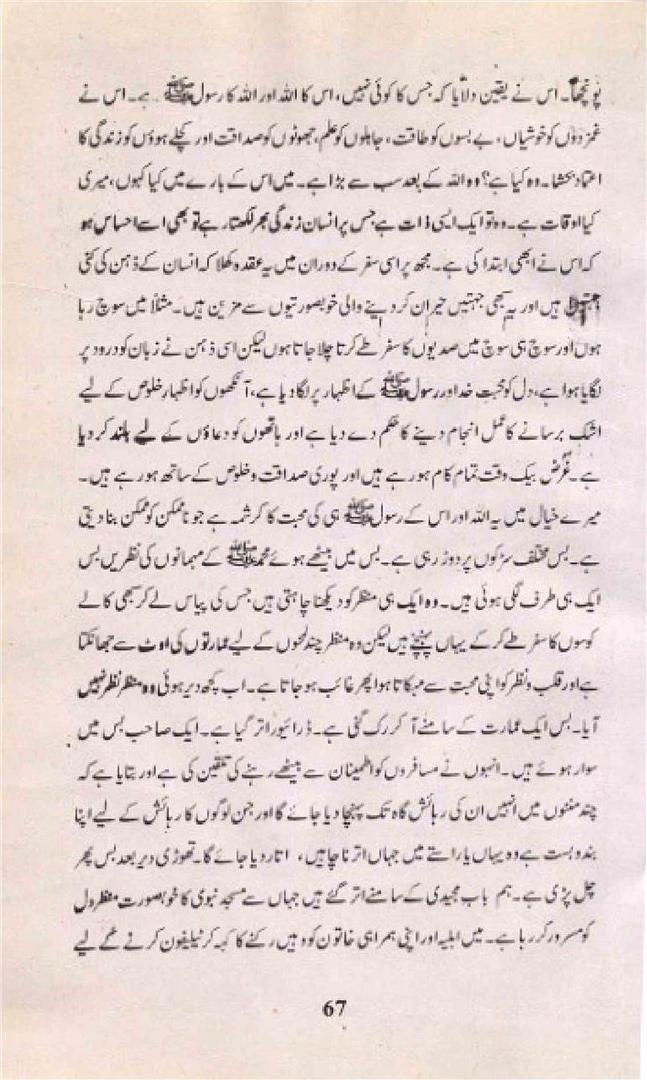 پونچھا۔ اس نے یقین دلایا کہ جس کا کوئی نہیں، اس کا اللہ اور اللہ کا رسول ﷺ ہے۔ اس نے
غمزدوں کو خوشیاں، بے بسوں کو طاقت، جاہلوں کو علم، جھوٹوں کو صداقت اور کچلے ہوؤں کو زندگی کا
اعتماد بخشا۔ وہ کیا ہے؟ وہ اللہ کے بعد سب سے بڑا ہے۔ میں اس کے بارے میں کیا کہوں، میری
کیا اوقات ہے۔ وہ تو ایک ایسی ذات ہے جس پر انسان زندگی بھر لکھتا رہے تو بھی اسے احساس ہو
کہ اس نے ابھی ابتدا کی ہے۔ مجھ پر اسی سفر کے دوران میں یہ عقدہ کھلا کہ انسان کے ذہن کی کئی
ہیں اور یہ سبھی جہتیں حیران کر دینے والی خوبصورتیوں سے مزین ہیں۔ مثلاً میں سوچ رہا
ہوں اور سوچ ہی سوچ میں صدیوں کا سفر طے کرتا چلا جاتا ہوں لیکن اسی ذہن نے زبان کو درود پر
لگایا ہوا ہے، دل کو محبت خدا و رسول ﷺ کے اظہار پر لگا دیا ہے، آنکھوں کو اظہار خلوص کے لیے
اشک برسانے کا عمل انجام دینے کا حکم دے دیا ہے اور ہاتھوں کو دعاؤں کے لیے بلند کر دیا
ہے۔ غرض بیک وقت تمام کام ہو رہے ہیں اور پوری صداقت و خلوص کے ساتھ ہو رہے ہیں۔
میرے خیال میں یہ اللہ اور اس کے رسول ﷺ ہی کی محبت کا کرشمہ ہے جو ناممکن کو ممکن بنا دیتی
ہے۔ بس مختلف سڑکوں پر دوڑ رہی ہے۔ بس میں بیٹھے ہوئے محمد ﷺ کے مہمانوں کی نظریں بس
ایک ہی طرف لگی ہوئی ہیں۔ وہ ایک ہی منظر کو دیکھنا چاہتی ہیں جس کی پیاس لے کر سبھی کالے
کوسوں کا سفر طے کر کے یہاں پہنچے ہیں لیکن وہ منظر چند لمحوں کے لیے عمارتوں کی اوٹ سے جھانکتا
ہے اور قلب و نظر کو اپنی محبت سے مہکاتا ہوا پھر غائب ہو جاتا ہے۔ اب کچھ دیر ہوئی وہ منظر نظر نہیں
آیا۔ بس ایک عمارت کے سامنے آ کر رک گئی ہے۔ ڈرائیور اتر گیا ہے۔ ایک صاحب بس میں
سوار ہوئے ہیں۔ انہوں نے مسافروں کو اطمینان سے بیٹھے رہنے کی تلقین کی ہے اور بتایا ہے کہ
چند منٹوں میں انہیں ان کی رہائش گاہ تک پہنچا دیا جائے گا اور جن لوگوں کا رہائش کے لیے اپنا
بندوبست ہے وہ یہاں یا راستے میں جہاں اترنا چاہیں، اتار دیا جائے گا۔ تھوڑی دیر بعد بس پھر
چل پڑی ہے۔ ہم باب مجیدی کے سامنے اتر گئے ہیں جہاں سے مسجد نبوی کا خوبصورت منظر دل
کو مسرور کر رہا ہے۔ میں اہلیہ اور اپنی ہمراہی خاتون کو وہیں رکنے کا کہہ کر ٹیلیفون کرنے کے لیے
67